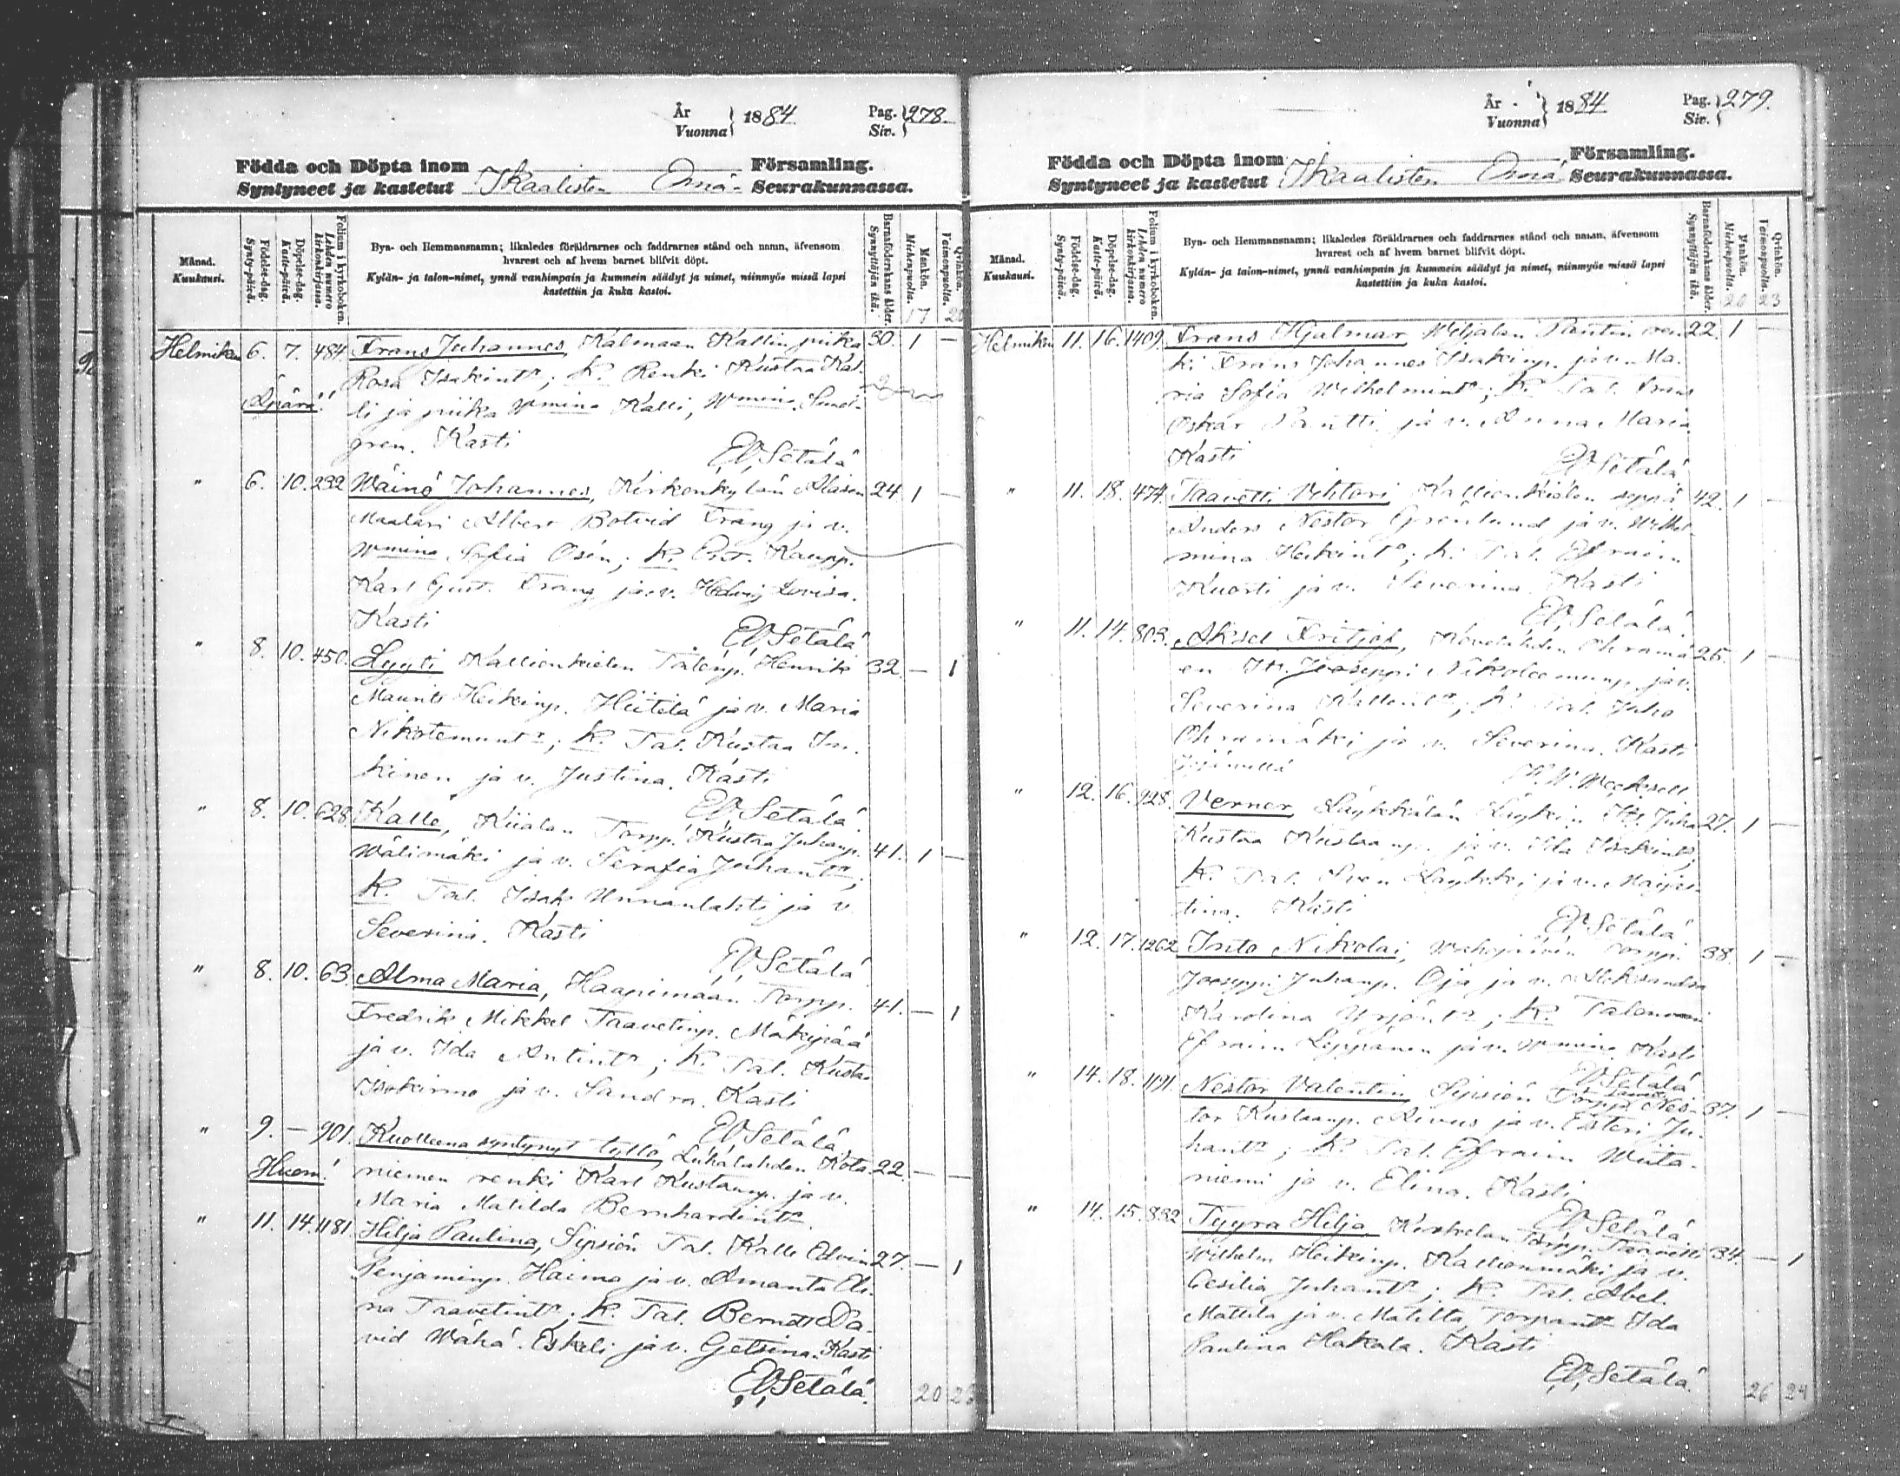 År
Vuonna } 1884
Pag.
Siv. } 278.
Födda och Döpta inom
Syntyneet ja kastetut
Ikaalisten Oma
Församling.
Seurakunnassa.
Månad.
Kuukausi.
Födelse-dag.
Synty-päivä.
Döpelse-dag.
Kaste-päivä.
Folium i kyrkoboken.
Lehden numero kirkonkirjassa.
Bya- och Hemmansnamn; likaledes föräldrarnes och faddrarnes stånd och namn, äfvensom
hvarest och af hvem barnet blifvit döpt.
Kylän- ja talon-nimet, ynnä vanhimpain ja kummein säädyt ja nimet, niinmyös missä lapsi
kastettiin ja kuka kastoi.
Barnaföderskans ålder.
Synnyttäjän ikä.
Mankön.
Miehenpuolta.
Qvinkön.
Vaimonpuolta.
17
Helmikuu 6. 7. 484. Frans Juhannes, Kalmaan Kallin piika 30. 1 —
Rosa Isakint:; K. Renki Kustaa Kal-
Äpärä! li ja piika Wmina Kalli, Wmina Sund-
gren. Kasti
EV Setälä
" 6. 10. 232 Wäinö Johannes, Kirkonkylän Alasen 24. 1 —
Maalari Albert Botvid Trang ja v.
Wmina Sofia Osén; K. Kaupp.
Karl Gust. Trang ja v. Hedvig Lovisa.
Kasti
EV Setälä
" 8. 10. 450. Lyyti Kallionkielen Talonp. Henrik 32. — 1
Maurits Heikinp. Hiitelä ja v. Maria
Nikotemunt:; K. Tal. Kustaa In-
kinen ja v. Justina. Kasti
EV Setälä.
" 8. 10. 628. Kalle, Kiialan Torpp. Kustaa Juhanp. 41. 1 —
Wälimäki ja v. Serafia Juhant:;
K. Tal. Isak Unnanlahti ja v.
Severina. Kasti
EV Setälä
" 8. 10. 63. Alma Maria, Haapimaan Torpp. 41. — 1
Fredrik Mikkel Taavetinp. Mäkipää
ja v. Ida Antint:; K. Tal. Kusta
Isokirmo ja v. Sandra. Kasti
EV Setälä.
" 9. — 901. Kuolleena syntynyt tyttö, Luhalahden Kota 22. — —
Huom! niemen renki Karl Kustaanp. ja v.
Maria Matilda Bernhardint:.
" 11. 14. 1181. Hilja Paulina, Sipsiön Tal. Kalle Edvin 27. — 1
Penjaminp. Haimo ja v. Amanta Eli-
na Taavetint:; K. Tal. Berndt Da-
vid Wähä-Eskeli ja v. Getsina. Kasti
EV Setälä.
20 23
År
Vuonna } 1884
Pag.
Siv. } 279.
Födda och Döpta inom
Syntyneet ja kastetut
Ikaalisten Oma
Församling.
Seurakunnassa.
Månad.
Kuukausi.
Födelse-dag.
Synty-päivä.
Döpelse-dag.
Kaste-päivä.
Folium i kyrkoboken.
Lehden numero kirkonkirjassa.
Bya- och Hemmansnamn; likaledes föräldrarnes och faddrarnes stånd och namn, äfvensom
hvarest och af hvem barnet blifvit döpt.
Kylän- ja talon-nimet, ynnä vanhimpain ja kummein säädyt ja nimet, niinmyös missä lapsi
kastettiin ja kuka kastoi.
Barnaföderskans ålder.
Synnyttäjän ikä.
Mankön.
Miehenpuolta.
Qvinkön.
Vaimonpuolta.
20 23
Helmikuu 11. 16. 1409. Frans Hjalmar, Weljalan Pantin ren 22. 1 —
ki Frans Johannes Isakinp. ja v. Ma-
ria Sofia Wilhelmint:; K. Tal. Frans
Oskar Pantti ja v. Anna Maria
Kasti
EV Setälä.
" 11. 18. 474. Taavetti Vihtori, Kallionkielen seppä 42. 1 —
Anders Nestor Grönlund ja v. Wilhel-
mina Heikint:; K. Tal. Efraim
Kuosti ja v. Severina. Kasti
EV Setälä.
" 11. 14. 803. Aksel Fritjof, Röyhiön Ohramä 25. 1 —
en Jooseppi Nikoleemunp. ja v.
Severina Kallent:; K. Tal. Juho
Ohramäki ja v. Severina. Kasti
" 12. 16. 928. Verner, Läykkälän Läykin Juha 27. 1 —
Kustaa Kustaanp. ja v. Ida Isakint:
K. Tal. Sven Läykki ja v. Maijas-
tina. Kasti
EV Setälä
" 12. 17. 1262. Irito Nikolai, Torpp. 38. 1 —
Joosepp. Juhanp. Oja ja v. Aleksandra
Karolina Yrjönt:; K. Talonvari
Efraim Leppänen ja v. Wmina. Kasti
EV Setälä
" 14. 18. 1191. Nestor Valentin, Sipsiön Torpp. Nes- 37. 1 —
tor Kustaanp. Aivus ja v. Esteri Ju-
hant:; K. Tal. Efraim Wiita-
niemi ja v. Elina. Kasti
EV Setälä
" 14. 15. 832. Tyyra Hilja, Torpp. Taavetti 34. — 1
Wilhelm Heikinp. Kallionmäki ja v.
Cesilia Juhant:; K. Tal. Abel
Mattila ja v. Matilta, Ida
Paulina Hakala. Kasti
EV Setälä.
26 24